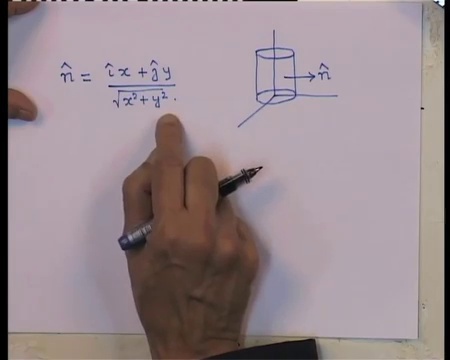 n̂ = (î x + ĵ y) / √(x² + y²)
n̂